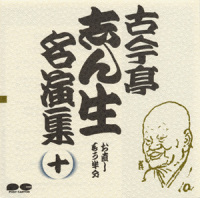 古今亭
志ん生
名演集
十
お直し
もう半分